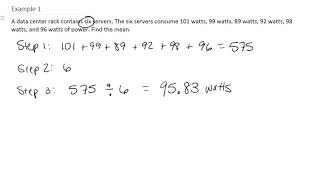 Example 1
A data center rack contains six servers. The six servers consume 101 watts, 99 watts, 89 watts, 92 watts, 98
watts, and 96 watts of power. Find the mean.
Step 1: 101 + 99 + 89 + 92 + 98 + 96 = 575
Step 2: 6
Step 3: 575 ÷ 6 = 95.83 watts